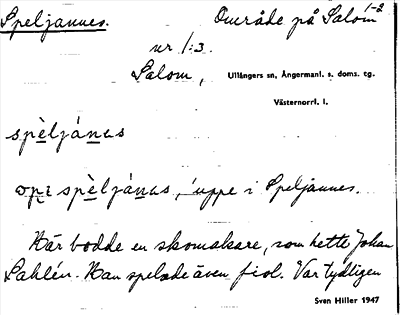 Speljannes. Område på Salom 1-2
nr 1:3.
Salom, Ullångers sn, Ångermanl. s. doms. tg.
Västernorrl. l.
spèljánas
opi spèljánas, 'uppe i Speljannes.
Här bodde en skomakare, som hette Johan
Sahlén. Han spelade även fiol. Var tydligen
Sven Hiller 1947